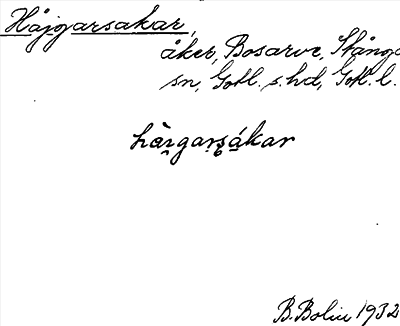 Håjgarsakar,
åker, Bosarve, Stånga
sn, Gotl. s. hd, Gotl. l.
hàɪ̯garʂákar
B. Bolin 1932